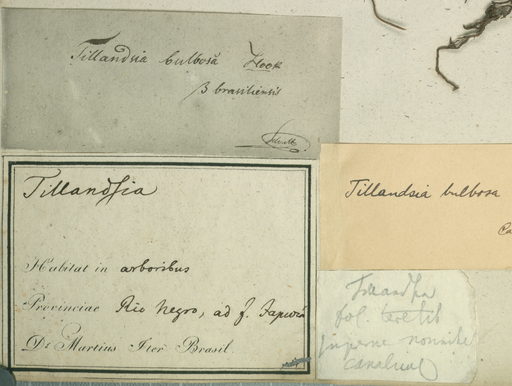 Tillandsia bulbosa Hook
β brasiliensis
Tillandsia
Habitat in arboribus
Provinciae Rio Negro, ad f. Japurá
Dr Martius Iter Brasil.
Tillandsia bulbosa
Tillandsia
fol. teretib
superne nonnihil